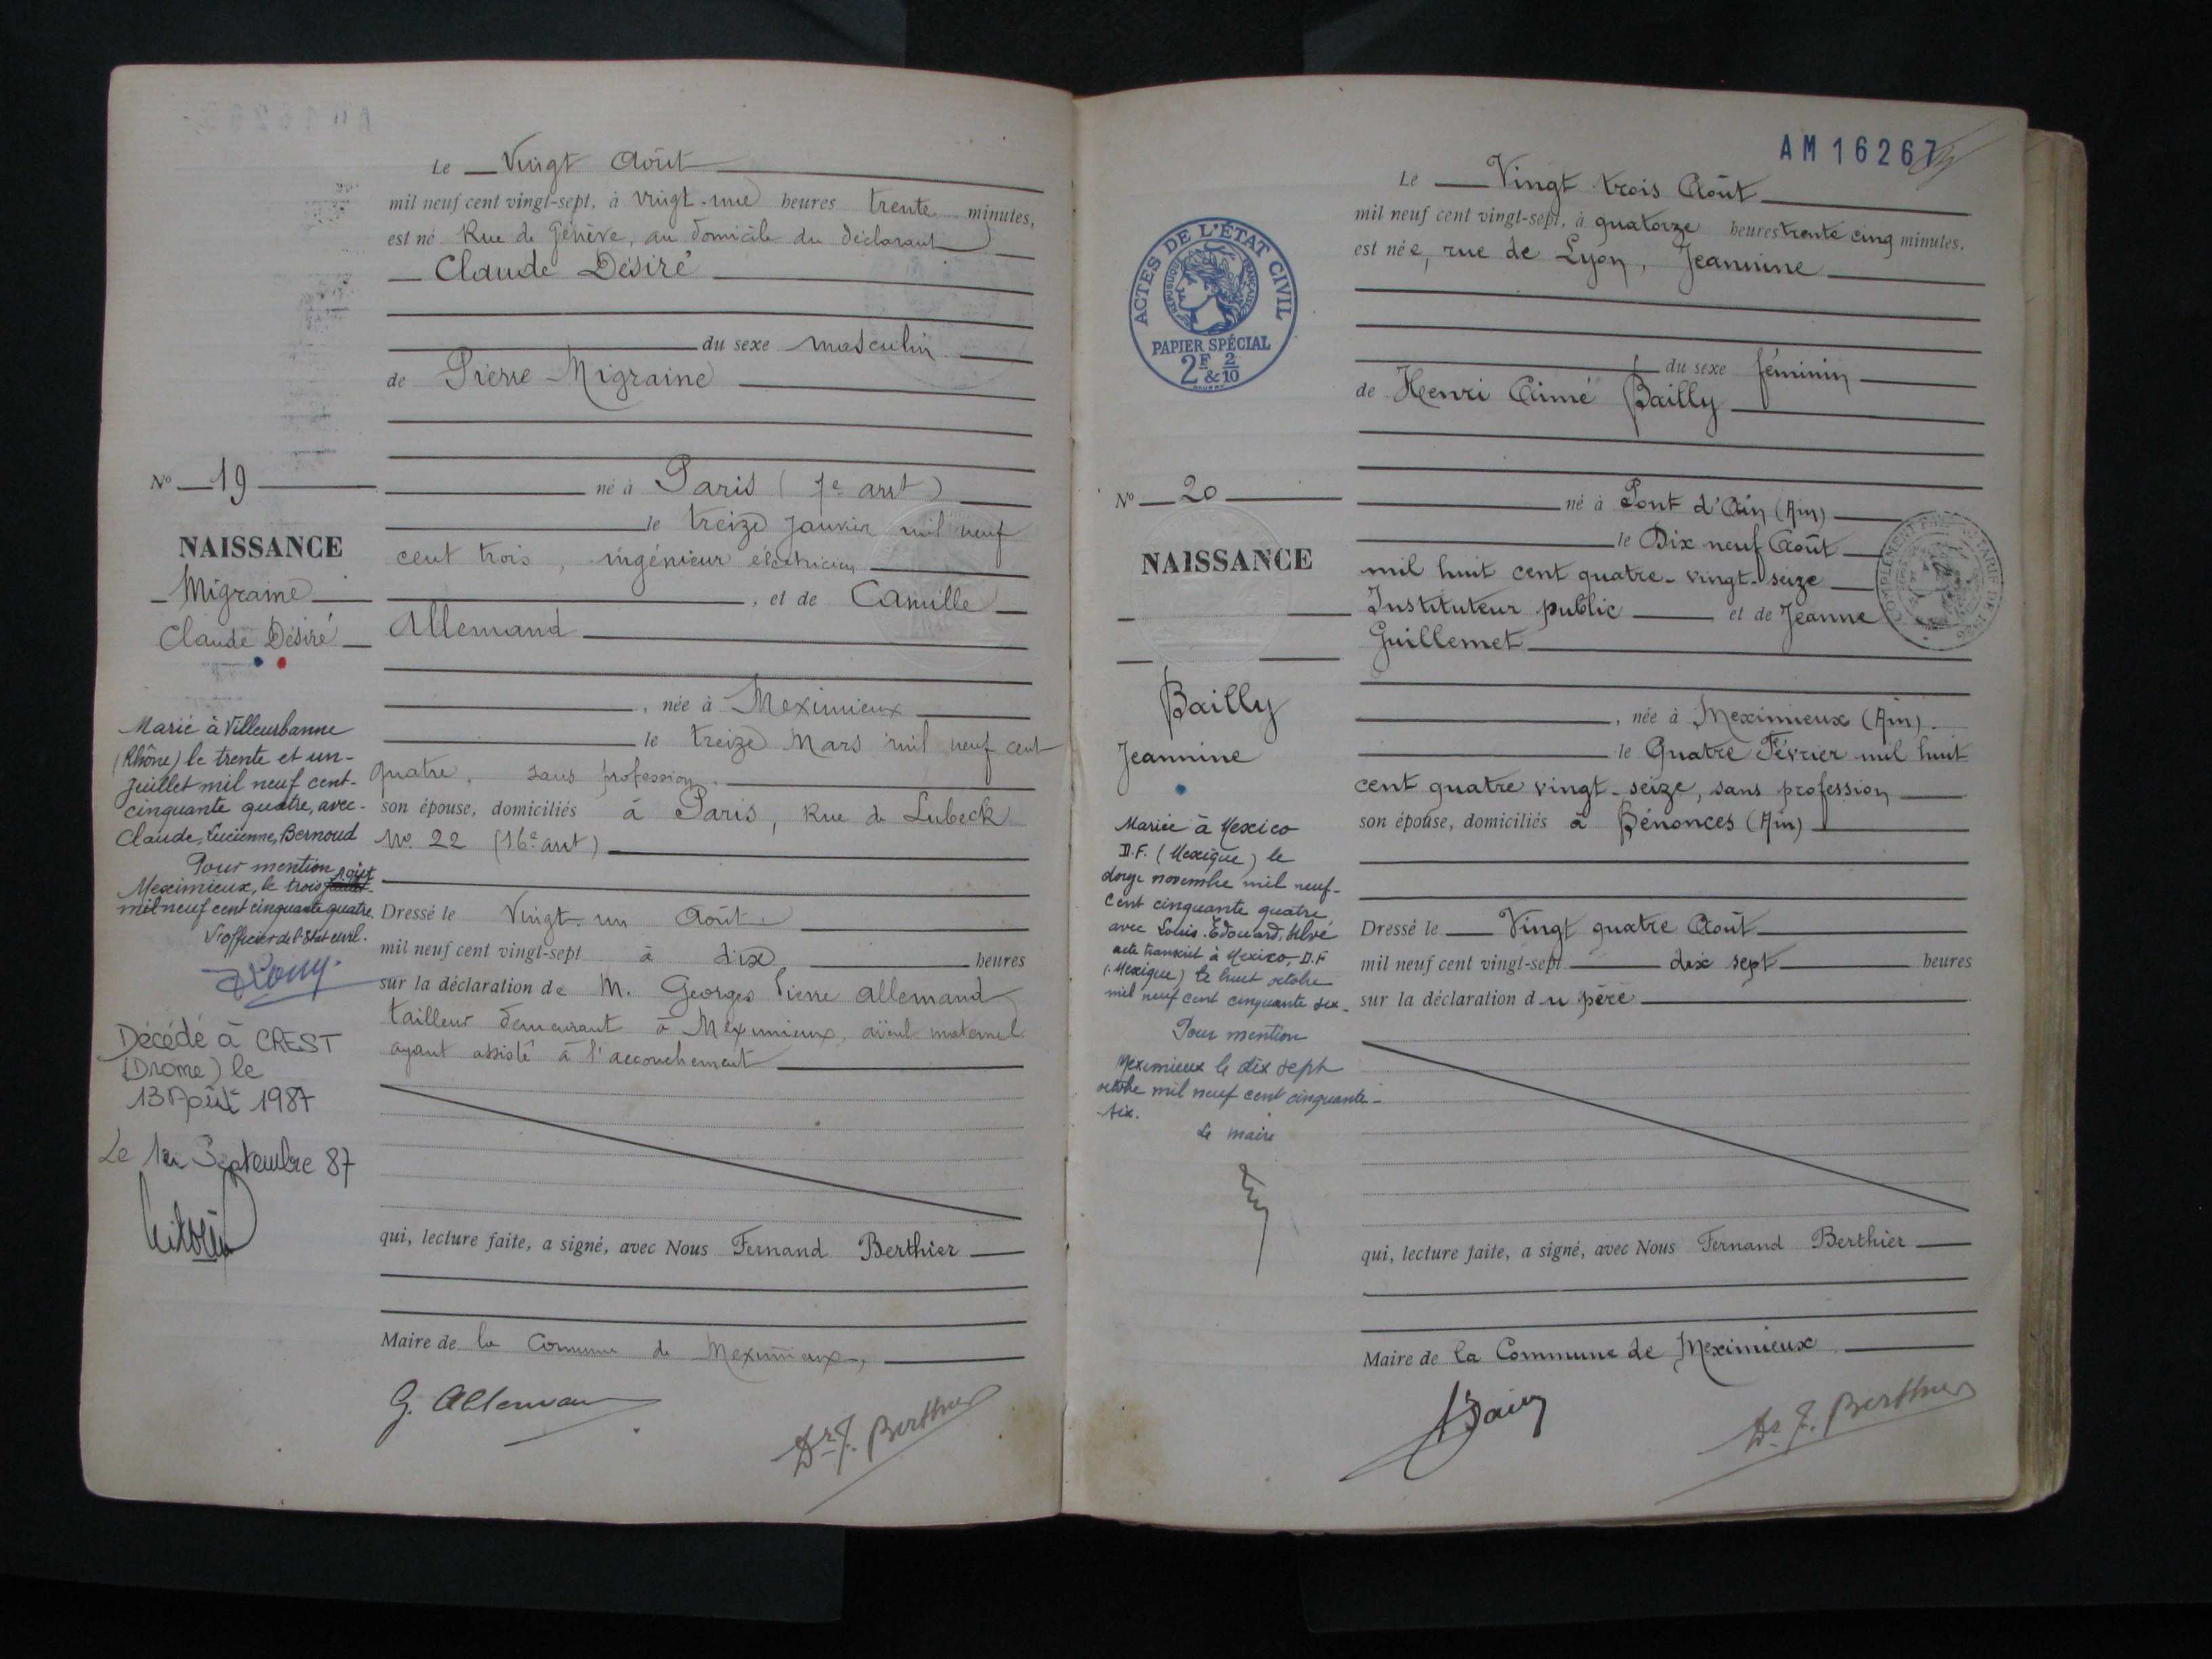 Le Vingt Août
mil neuf cent vingt-sept, à vingt-une heures trente minutes,
est né Rue de Genève, au domicile du déclarant
Claude Désiré
du sexe masculin
de Pierre Migraine
né à Paris (7e arrt)
le treize janvier mil neuf
cent trois, ingénieur électricien
, et de Camille
Allemand
, née à Meximieux
le treize Mars mil neuf cent
quatre, sans profession,
son épouse, domiciliés à Paris, Rue de Lubeck
No 22 (16e arrt)
Dressé le Vingt-un Août
mil neuf cent vingt-sept à dix heures
sur la déclaration de M. Georges Pierre Allemand
tailleur demeurant à Meximieux, aïeul maternel
ayant assisté à l'accouchement
qui, lecture faite, a signé, avec Nous Fernand Berthier
Maire de la Commune de Meximieux,
G. Alleman
Dr F. Berthier
No 19
NAISSANCE
Migraine
Claude Désiré
Marié à Villeurbanne
(Rhône) le trente et un-
Juillet mil neuf cent-
cinquante quatre, avec-
Claude, Lucienne, Bernoud
Pour mention
Meximieux, le trois août
mil neuf cent cinquante quatre.
L'officier de l'Etat civil.
Décédé à CREST
(Drome) le
13 Août 1987
Le 1er Septembre 87
AM 16267
Le Vingt trois Août
mil neuf cent vingt-sept, à quatorze heures trente cinq minutes,
est née, rue de Lyon, Jeannine
du sexe féminin
de Henri Aimé Bailly
né à Pont d'Ain (Ain)
le Dix neuf Août
mil huit cent quatre-vingt-seize
Instituteur public et de Jeanne
Guillemet
, née à Meximieux (Ain).
le Quatre Février mil huit
cent quatre vingt-seize, sans profession
son épouse, domiciliés à Bénonces (Ain)
Dressé le Vingt quatre Août
mil neuf cent vingt-sept dix sept heures
sur la déclaration du père
qui, lecture faite, a signé, avec Nous Fernand Berthier
Maire de la Commune de Meximieux
Dr F. Berthier
ACTES DE L'ÉTAT CIVIL
RÉPUBLIQUE FRANÇAISE
PAPIER SPÉCIAL
2F & 2/10
No 20
NAISSANCE
Bailly
Jeannine
Mariée à Mexico
D.F. (Mexique) le
douze novembre mil neuf-
cent cinquante quatre,
avec Louis Edouard,
acte transcrit à Mexico, D.F
(Mexique) le huit octobre
mil neuf cent cinquante six-
Pour mention
Meximieux le dix sept
octobre mil neuf cent cinquante-
six.
Le maire